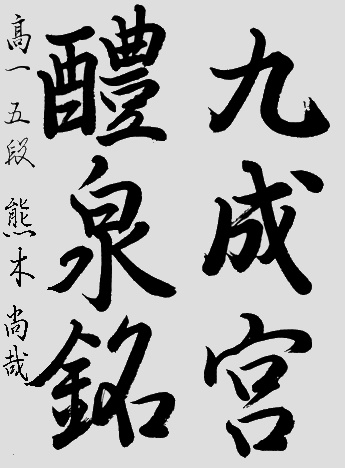 九成宮
醴泉銘
高一 五段 熊木 尚哉